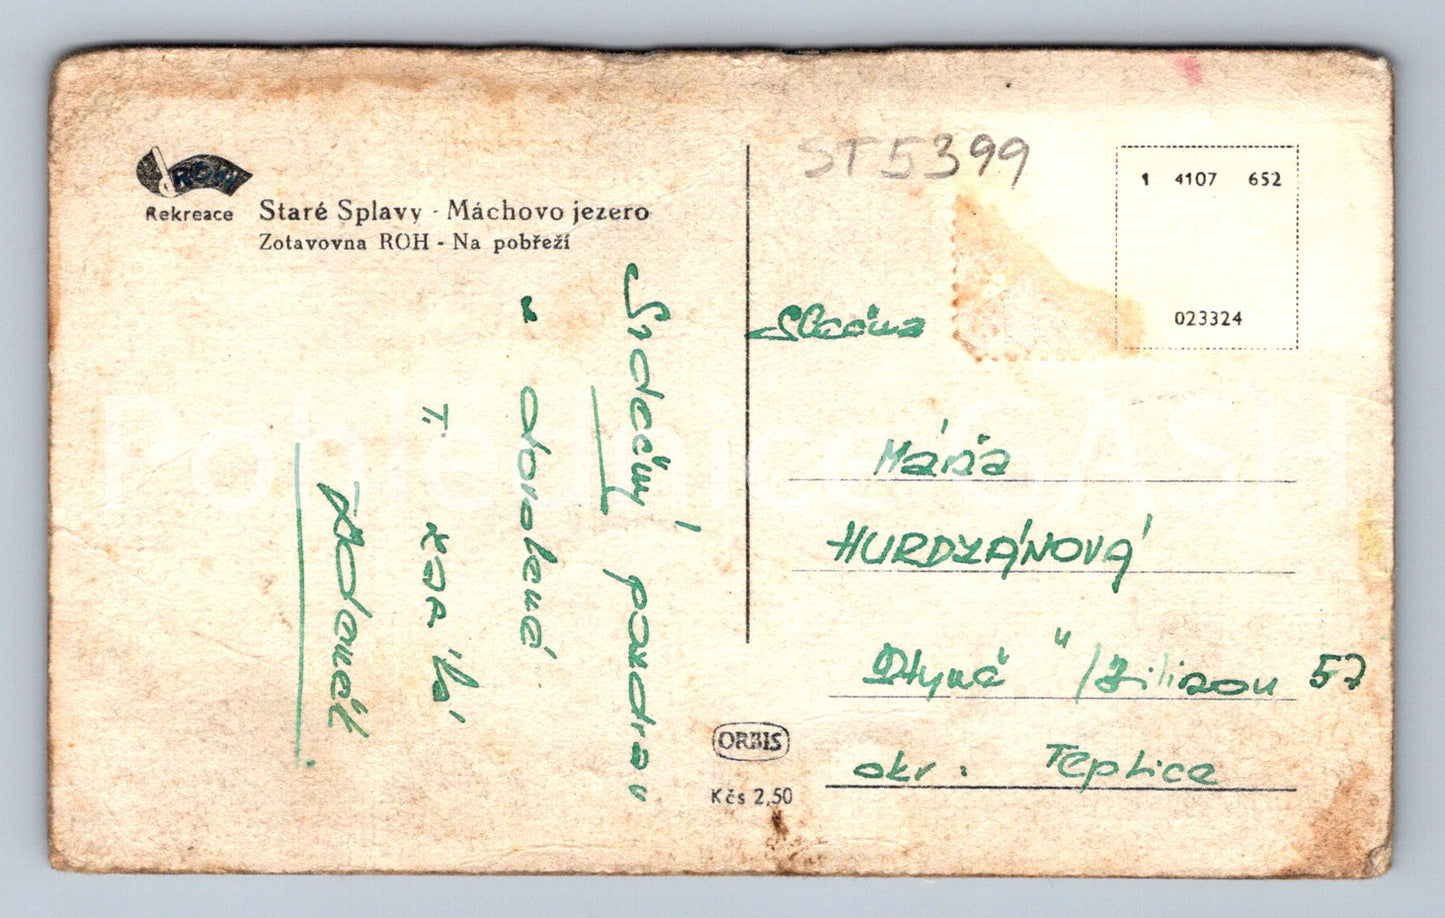 ROH
Rekreace
Staré Splavy - Máchovo jezero
Zotavovna ROH - Na pobřeží
Srdečný pozdrav
z dovolené
T.
ORBIS
Kčs 2,50
ST5399
1 4107 652
023324
Slečna
Mária
HURDZÁNOVÁ
57
okr. Teplice
PohledniceSASH